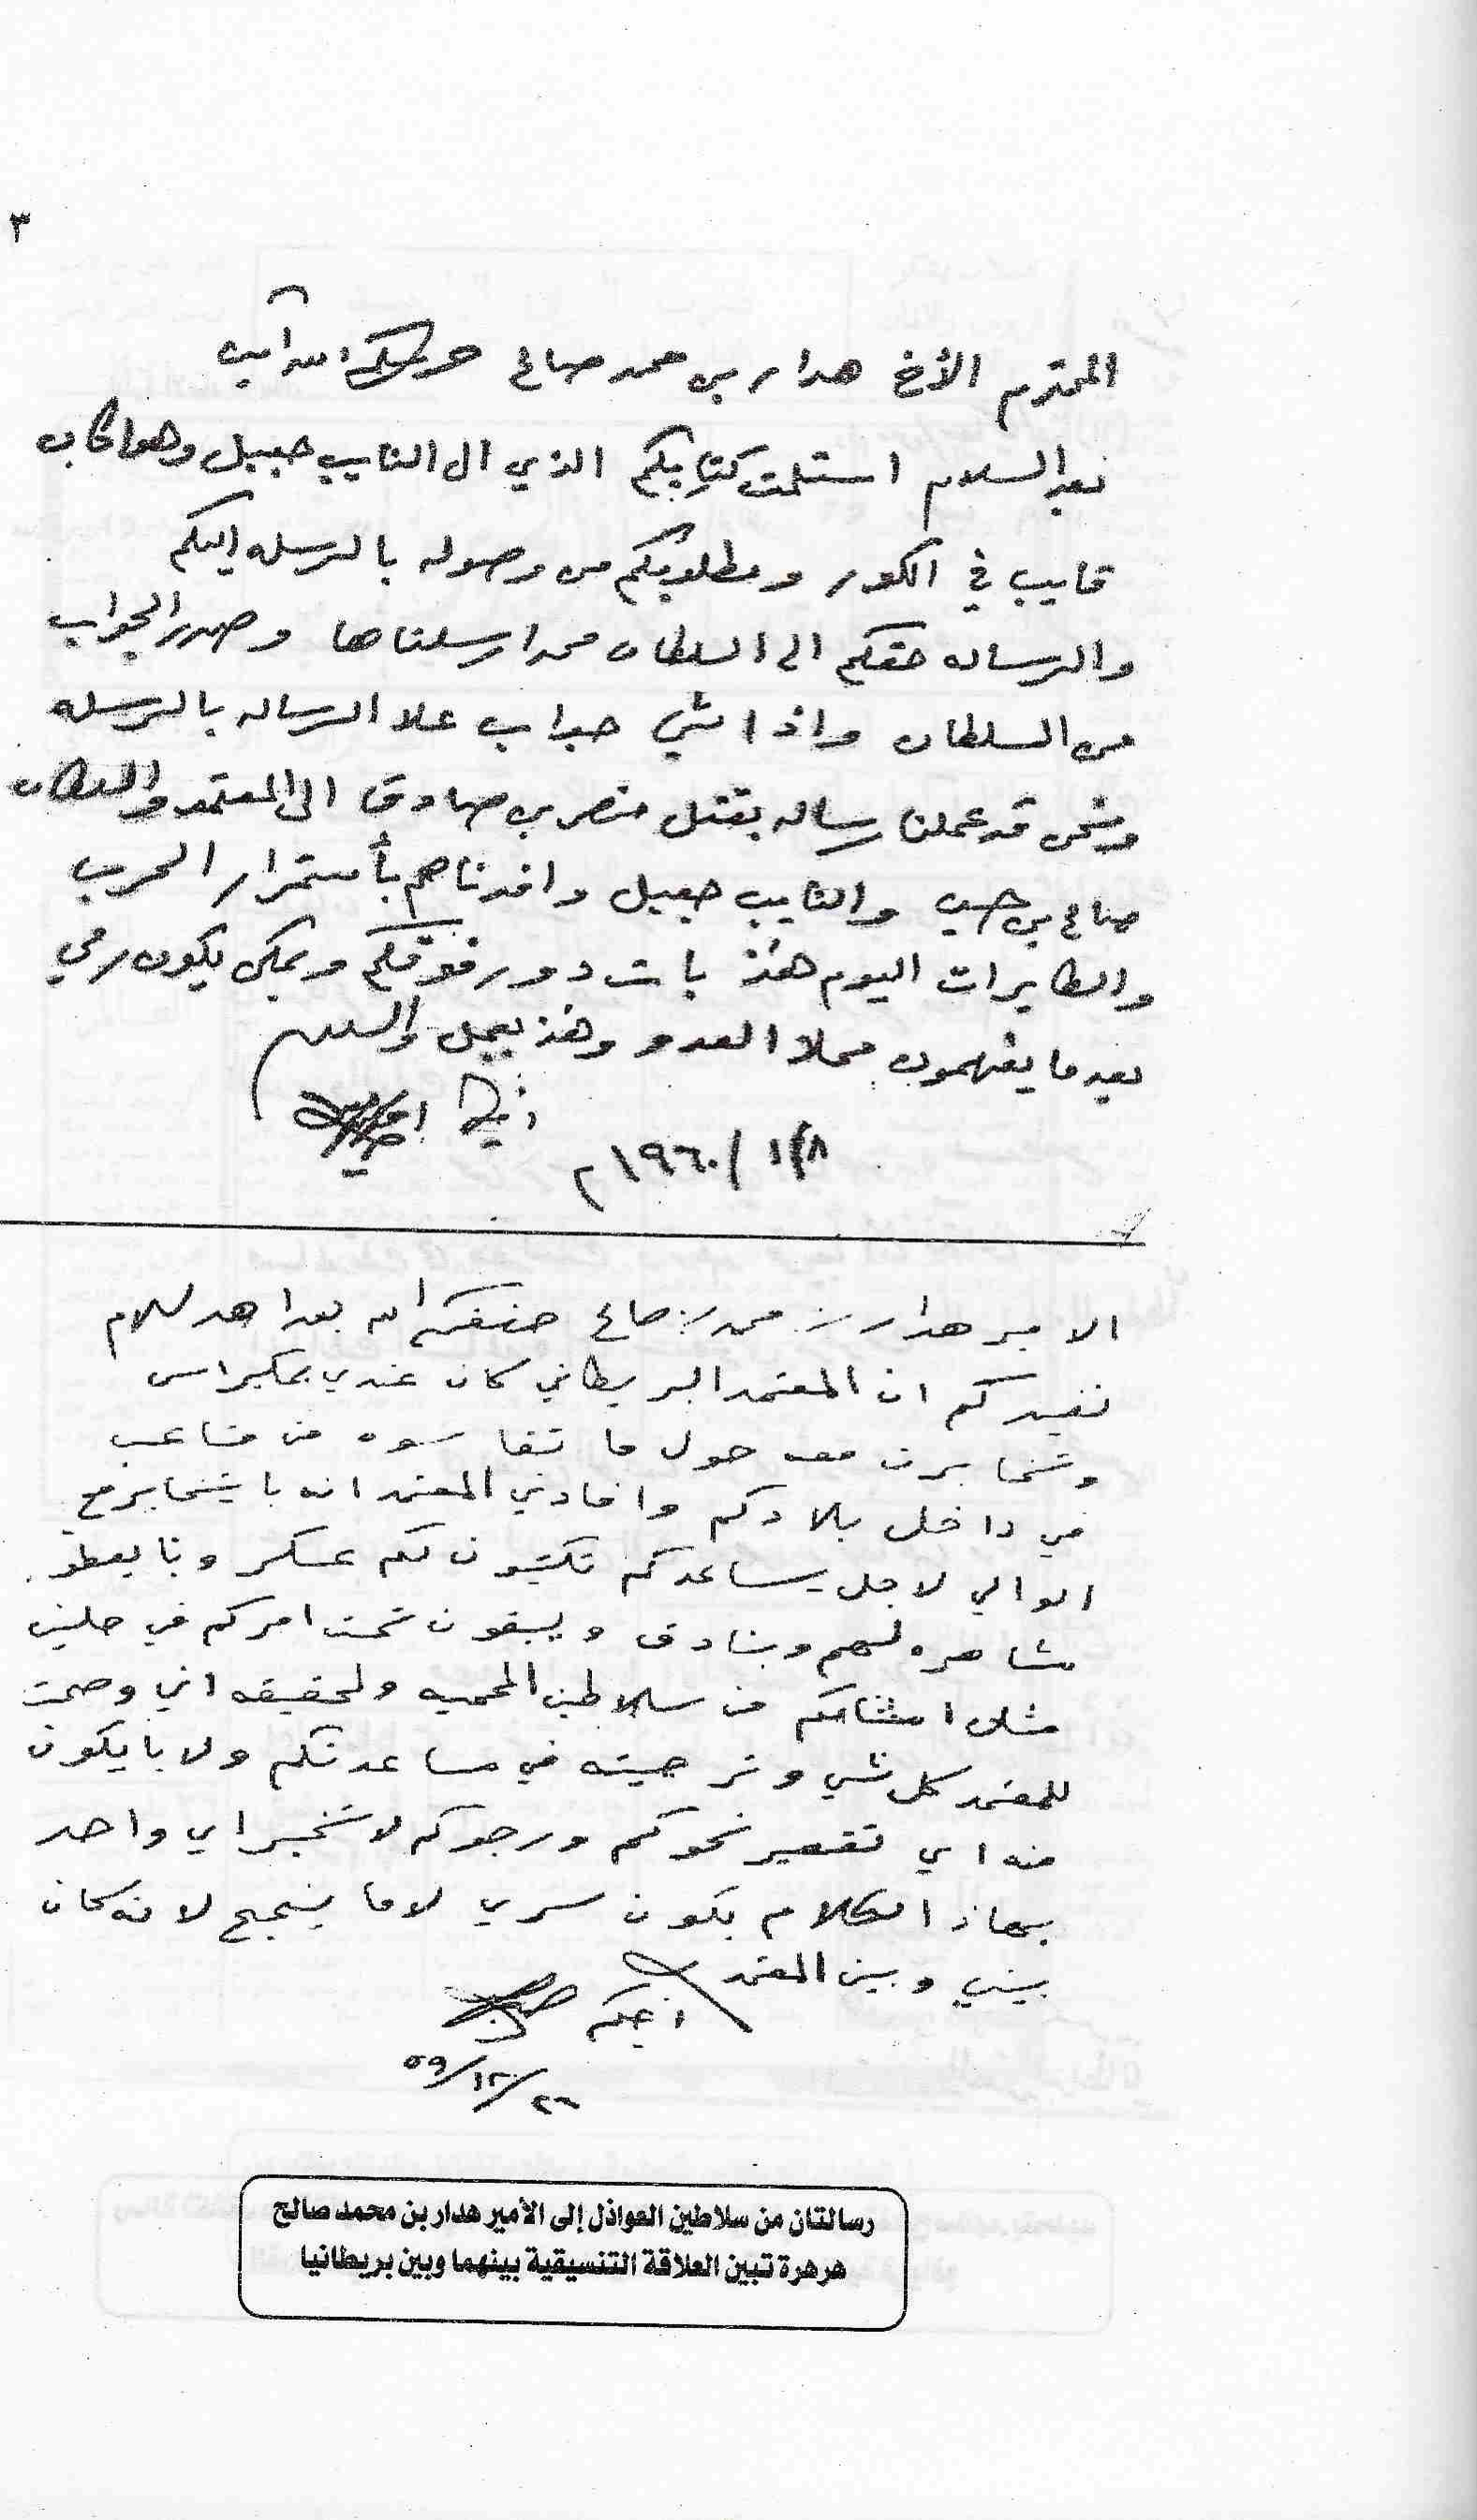 ٣
المحترم الأخ هدار بن محمد صالح حرسكم الله آمين
بعد السلام استلمت كتابكم الذي الى النايب جعبيل وهوا كان
غايب في الكور ومطلوبكم من وصوله بالرسله إليكم
والرساله حقكم الى السلطان محمد ارسلناها وصدر الجواب
من السلطان واذا شي جواب علا الرساله بالرسله
ونحن قد عملنا رساله بقتل منصر بن صادق الى المعتمد والسلطان
صالح بن حسين والنايب جعبيل وافدناهم بأستمرار الحرب
والطايرات اليوم هذ بات دور فوقكم ويمكن يكون رمي
بعد ما يفهمون محلا العدو وهذ بعجل والسلام
١٩٦٠/١/٨م
الامير هدار بن محمد بن صالح حفظكم الله بعد اهد السلام
نفيدكم ان المعتمد البريطاني كان عندي بمكيراس
وتخابرت معه حول ما تقاسوه من متاعب
في داخل بلادكم وافادني المعتمد انه با يتخابر مع
الوالي لاجل يساعدكم تكتبون لكم عسكر وبا يعطو
مشاهره لهم وبنادق ويبقون تحت امركم في حلين
مثل امثالكم من سلاطين المحميه ولحقيقه اني وضحت
للمعتمد كل شي وترجيته في مساعدتكم ولا با يكون
منه اي تقصير نحوكم ورجوكم لا تخبر اي واحد
بهاذ الكلام يكون سري لاما ينجح لانه كان
بيني وبين المعتمد
اخيكم
٥٩/١٢/٢٦
رسالتان من سلاطين العواذل إلى الأمير هدار بن محمد صالح
هرهرة تبين العلاقة التنسيقية بينهما وبين بريطانيا